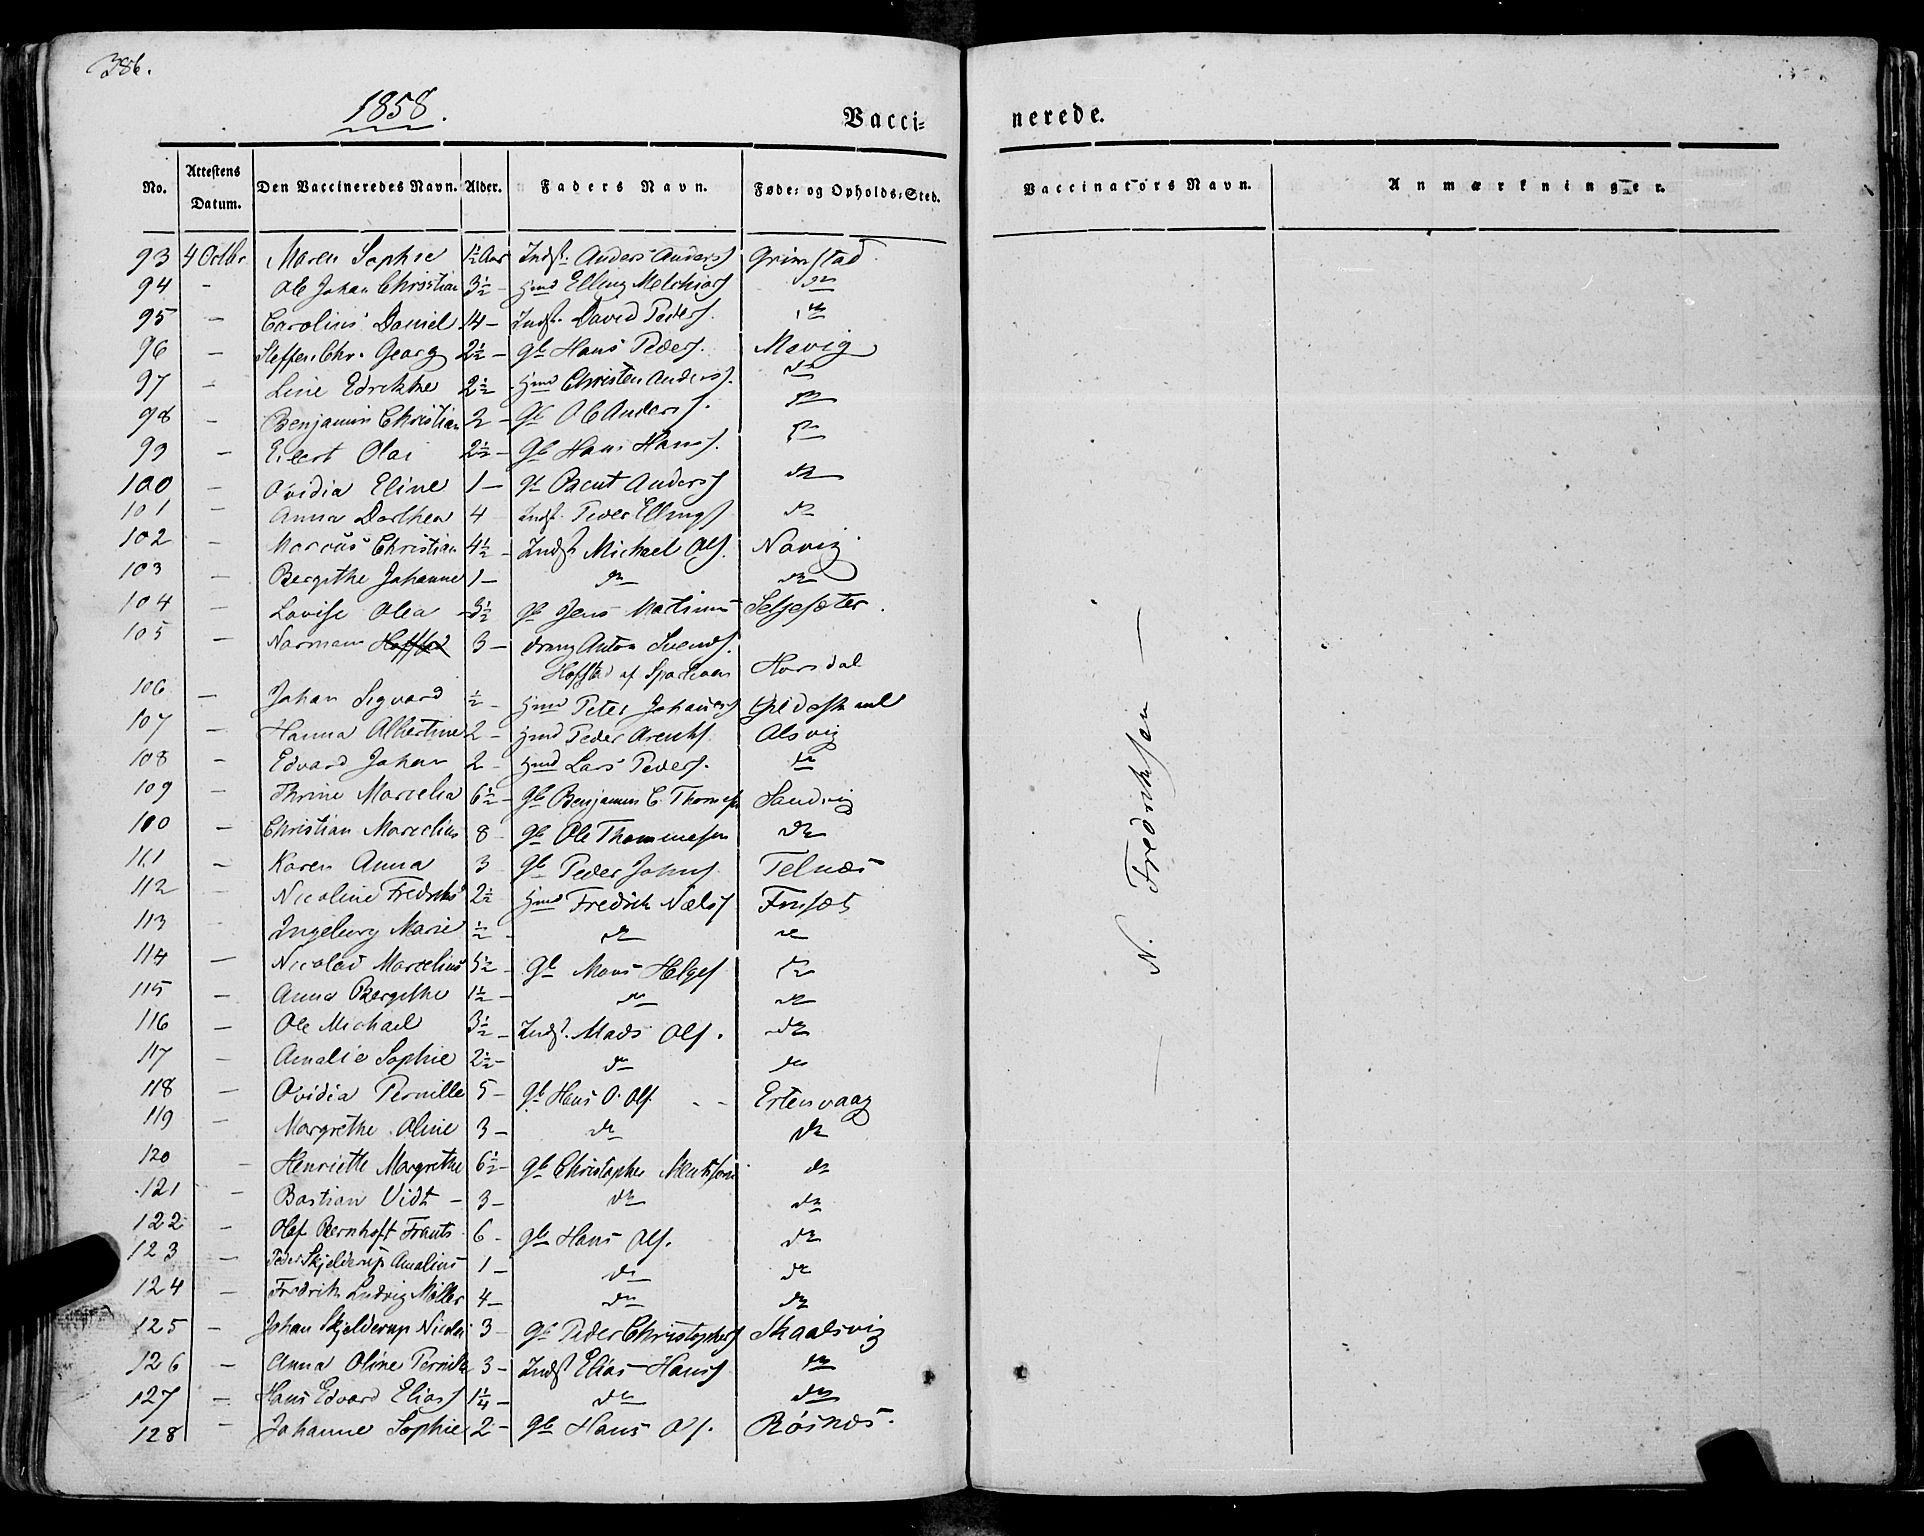 386.
1858.
Vacci-
nerede.
No. Attestens Datum. Den Vaccineredes Navn. Alder. Faders Navn. Føde- og Opholds-Sted.
Vaccinators Navn. Anmærkninger.
93 4 Octbr. Maren Sophie 1½ Aar Indst. Anders Anders Grimstad
94 - Ole Johan Christian 3½ - Hmd Elling Melchiors do
95 - Carolius Daniel 14 - Indst. David Peders. do
96 - Steffen Chr. Georg 2½ - Gb Hans Peders. Mevig
97 - Line Edrikke 2½ - Hmd Christen Anders. do
98 - Benjamin Christian 2 - Gb Ole Anders. do
99 - Eilert Olai 2½ - Gb Hans Hans. do
100 - Ovidia Eline 1 - Gb Bent Anders do
101 - Anna Dorthea 4 Indst. Peder Ellings do
102 - Marcus Christian 4½ - Indst Michael Ols. Novig
103 - Bergithe Johanne 1 - do do
104 - Lovise Olea 3½ Gb Jens Martinus Seljesæter.
105 - Normann 3 - dreng Anton Svends.
Hoffstad af Horsdal
106 - Johan Sigvard ½ - Hmd Peter Johans Gildeskaal
107 - Hanna Albertine 2 - Hmd Peder Arents Alsvig
108 - Edvard Johan 2 - Hmd Lars Peders. do
109 - Thrine Marcelia 6½ - Gb Benjamin C. Thomes Sandvig
100 - Christian Marcelius 8 - Gb Ole Thommesen do
111 - Karen Anna 3 Gb Peder Johns Telnæs
112 - Nicoline Fredrike 2½ Hmd Fredrik Næls Finsæt
113 - Ingeborg Marie ½ - do do
114 - Nicolai Marcelius 5½ - Gb Mons Helges do
115 - Anna Bergithe 1½ - do do
116 - Ole Michael 3½ - Indst. Mads Ols. do
117 - Amalie Sophie 2½ - do do
118 - Ovidia Pernille 5 - Gb Hans O. Ols. - - Ertenvaag
119 - Margrethe Oline 3 - do do
120 - Henriette Margrethe 6½ - Gb Christopher do
121 - Bastian Vidt - 3 - do do
122 - Olaf Bernhoft Frants 6 - Gb Hans Ols. do
123 - Peder Skjelderup Amalius 1 - do do
124 - Fredrik Ludvig Møller 4 - do do
125 - Johan Skjelderup Nicolai 3 - Gb Peder Christophers Skaalsvig
126 - Anna Oline Pernille 3 - Indst Elias Hans do
127 - Hans Edvard Elias 1¼ - do do
128 - Johanne Sophie 2 - Gb Hans Ols. Røsnæs.
- N. Fredriksen -